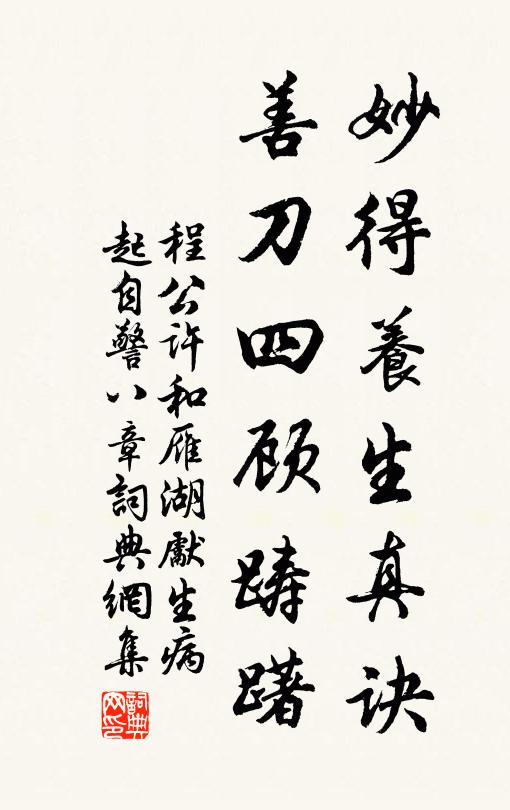 妙得養生真诀
善刀四顾踌躇
程公許和雁湖獻生病
起自警八章詞典網集
詞典网印